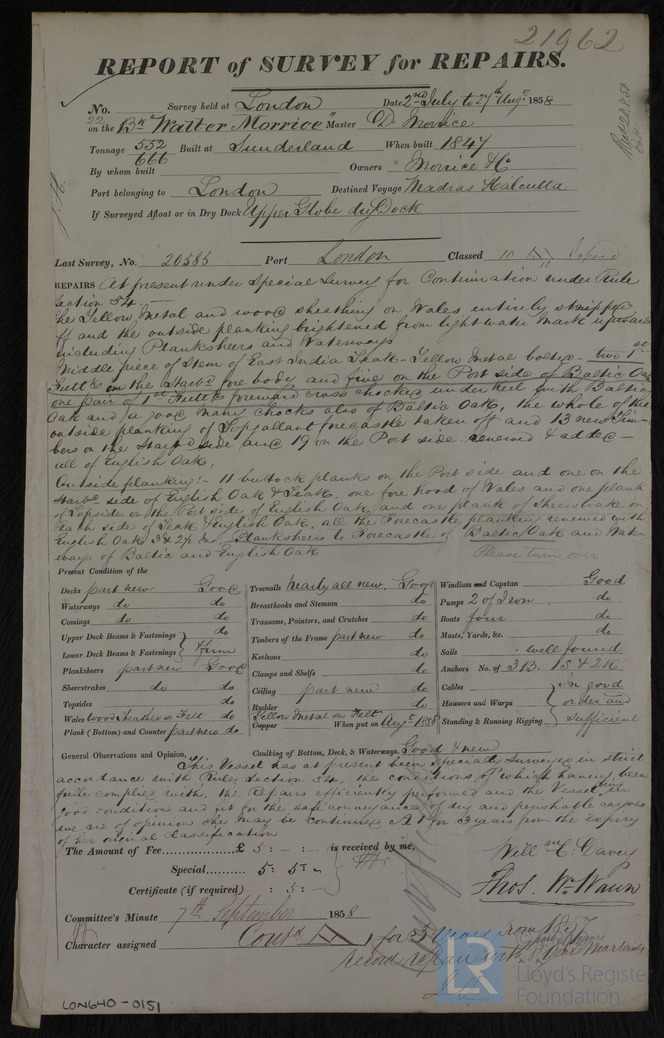 21962
REPORT of SURVEY for REPAIRS.
No. Survey held at London Date 2nd July to 27th Augt 1858
22 on the Bk "Walter Morrice" Master D. Morrice
Tonnage 552 Built at Sunderland When built 1847
666
By whom built Owners Morrice & Co
Port belonging to London Destined Voyage Madras & Calcutta
If Surveyed Afloat or in Dry Dock Upper Globe dry Dock
Last Survey, No. 20585 Port London Classed 10 A
REPAIRS At present under Special Survey for Continuation under Rule
Section 54 —
The Yellow Metal and wood sheething on Wales entirely stripped
off and the outside planking brightened from light water mark upwards
including Plansheers and Waterways
Middle piece of Stem of East India Teak - Yellow Metal bolts - two 1st
Futtks on the Starbd fore body, and five on the Port side of Baltic Oak
one pair of 1st Futtks foreward cross chocked under keel with Baltic
Oak and a good many chocks also of Baltic Oak, the whole of the
outside planking of Topgallant forecastle taken off and 13 new Tim-
bers on the Starbd side and 19 on the Port side renewed & added —
all of English Oak,
Outside planking:- 11 buttock planks on the Port side and one on the
Starbd side of English Oak & Teak, one fore hood of Wales and one plank
of Topside on the Port side of English Oak and one plank of Sheerstrake on
each side of Teak & English Oak, all the Forecastle planking renewed with
English Oak 3 & 2½ Ins, Plansheers to Forecastle of Baltic Oak and Water
ways of Baltic and English Oak
Please turn over
Present Condition of the
Decks part new Good
Waterways do do
Comings do do
Upper Deck Beams & Fastenings do
Lower Deck Beams & Fastenings & firm
Planksheers part new Good
Sheerstrakes do do
Topsides do
Wales wood sheathed & Felt do
Plank (Bottom) and Counter part new do
Treenails nearly all new, Good
Breasthooks and Stemson do
Transoms, Pointers, and Crutches do
Timbers of the Frame part new do
Keelsons do
Clamps and Shelfs do
Ceiling part new do
Rudder do
Copper Yellow Metal on Felt When put on Augt 1858
Windlass and Capstan Good
Pumps 2 of Iron do
Boats four do
Masts, Yards, &c. do
Sails well found
Anchors No. of 3 B. 1 S & 2 K
Cables In good
Hausers and Warps order and
Standing & Running Rigging sufficient
Caulking of Bottom, Deck, & Waterways Good & new
General Observations and Opinion, This Vessel has at present been specially surveyed in strict
accordance with Rule, Section 54, the conditions of which having been
fully complied with, the Repairs efficiently performed and the Vessel being in
good condition and fit for the safe conveyance of dry and perishable cargoes
we are of opinion she may be continued A 1 for 3 years from the expiry
of her original classification
The Amount of Fee £ 5 : - : - is received by me,
Special 5 : 5 : -
Certificate (if required) : 5 : -
Willm C. Davey
Thos. Wm Wawn
Committee's Minute 7th September 1858
Character assigned Contd A 1 for 3 years from 1857
Record repair with
LON640-0151
LR
Lloyd's Register
Foundation